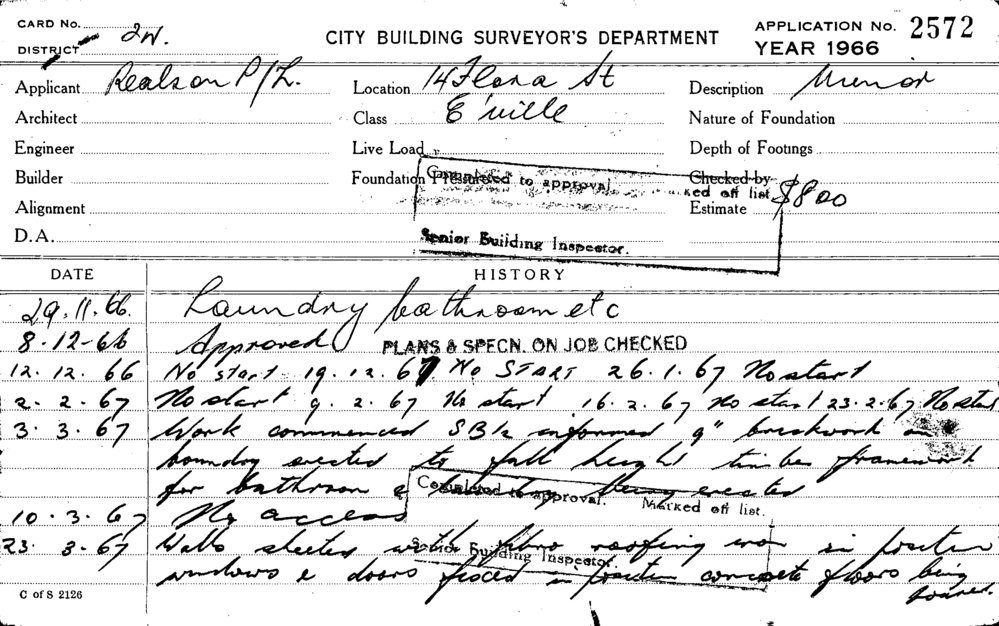 CARD No. 2W.
DISTRICT
CITY BUILDING SURVEYOR'S DEPARTMENT
APPLICATION No. 2572
YEAR 1966
Applicant Realson P/L.
Location 14 Flora St
Description Minor
Architect
Class E'ville
Nature of Foundation
Engineer
Live Load
Depth of Footings
Builder
Foundation Pressure
Checked by
Completed to approval.
ked off list
Alignment
Estimate $800
D.A.
Senior Building Inspector.
DATE
HISTORY
29.11.66. Laundry bathroom etc
8-12-66 Approved PLANS & SPECN. ON JOB CHECKED
12.12.66 No start 19.12.67 No START 26.1.67 No start
2.2.67 No start 9.2.67 No start 16.2.67 No start 23.2.67 No start
3.3.67 Work commenced SBI2 informed 9" brickwork on
boundry erected to full height timber framework
for bathroom & being erected
Completed to approval. Marked off list.
10.3.67 No access
23.3.67 Walls sheeted with fibro roofing iron in position
Senior Building Inspector.
windows & doors fixed in position concrete floors being
C of S 2126